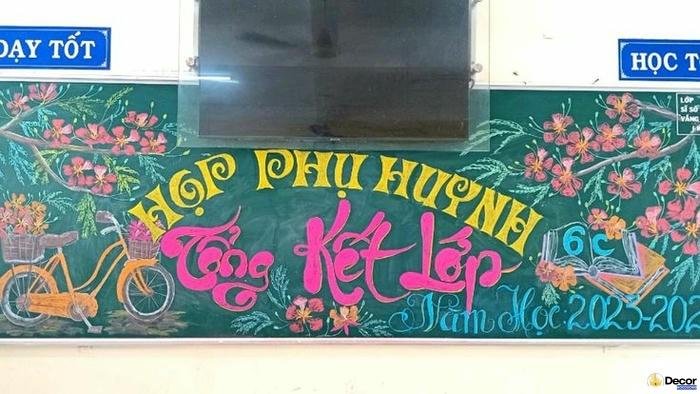 DẠY TỐT
HỌC T
LỚP
SĨ SỐ
VẮNG
HỌP PHỤ HUYNH
Tổng Kết Lớp
6C
Năm Học: 2023-202
Decor